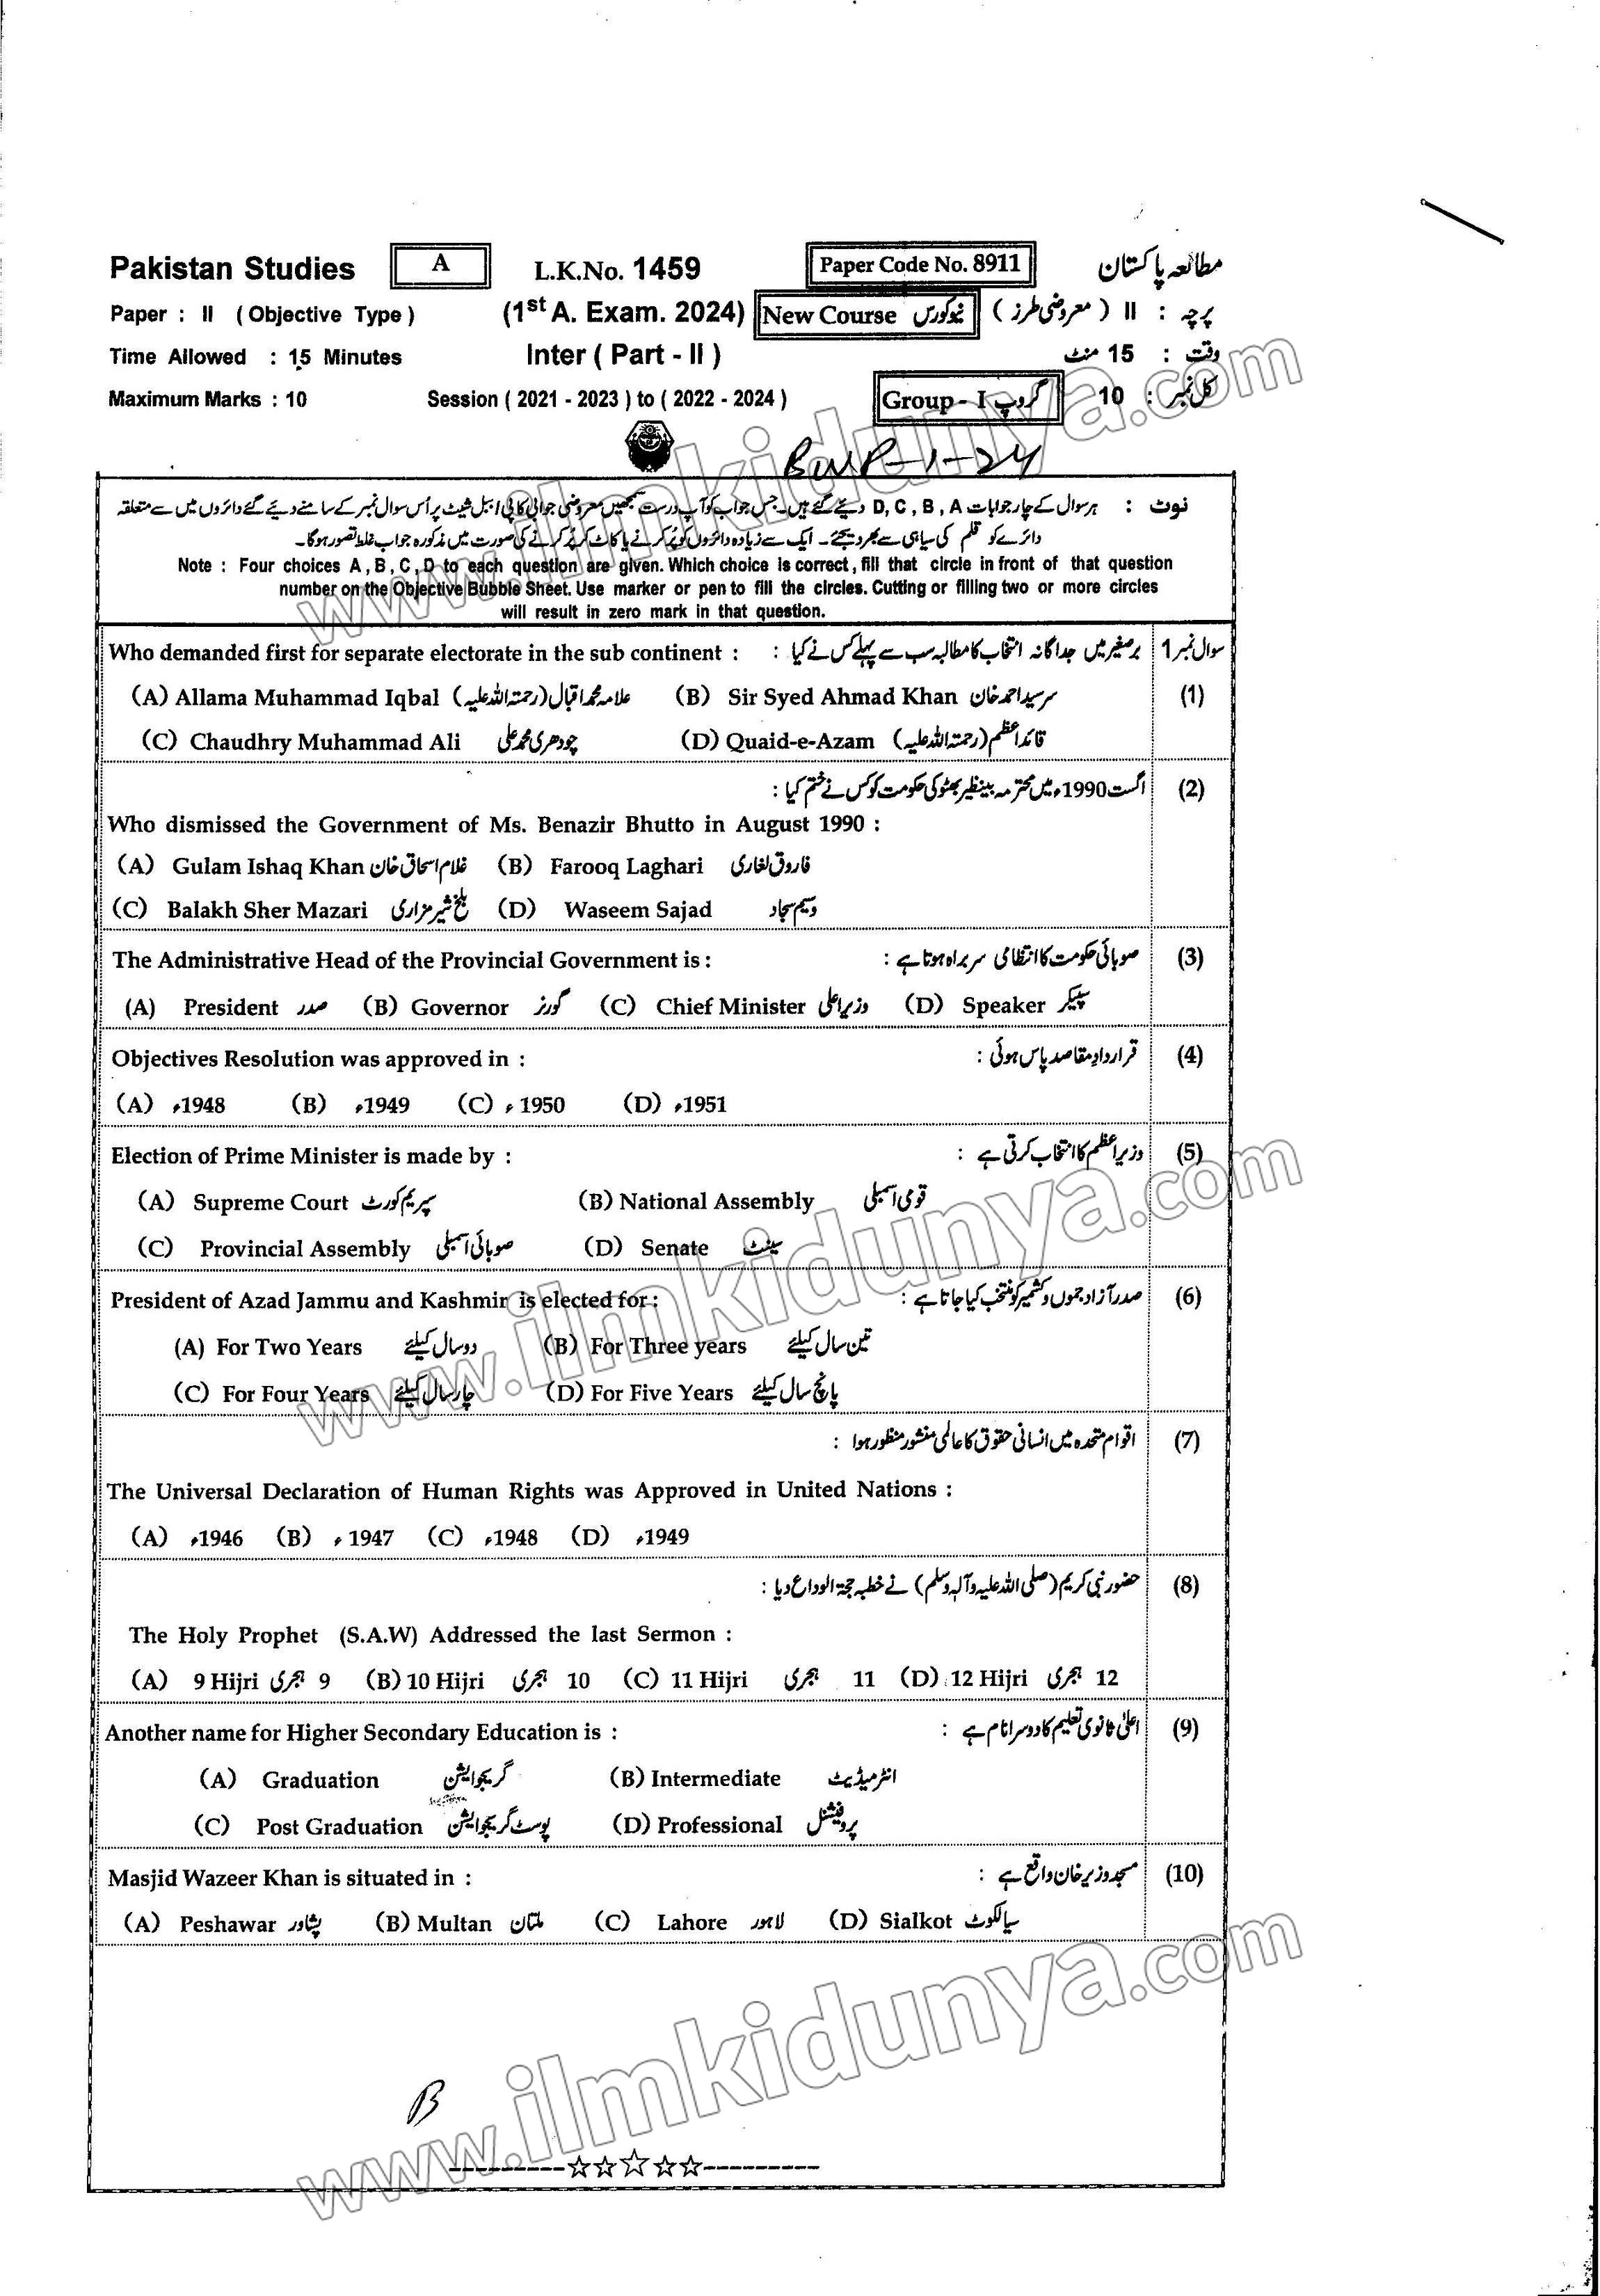 Pakistan Studies A L.K.No. 1459 Paper Code No. 8911 مطالعہ پاکستان
Paper : II ( Objective Type ) (1st A. Exam. 2024) New Course نیوکورس پرچہ : II ( معروضی طرز )
Time Allowed : 15 Minutes Inter ( Part - II ) وقت : 15 منٹ
Maximum Marks : 10 Session ( 2021 - 2023 ) to ( 2022 - 2024 ) Group - I گروپ کل نمبر : 10
BWP-1-24
نوٹ : ہر سوال کے چار جوابات D, C, B, A دیئے گئے ہیں۔ جس جواب کو آپ درست سمجھیں معروضی جوابی کاپی / ببل شیٹ پر اُس سوال نمبر کے سامنے دیے گئے دائروں میں سے متعلقہ
دائرے کو قلم کی سیاہی سے بھر دیجئے۔ ایک سے زیادہ دائروں کو پُر کرنے یا کاٹ کر پُر کرنے کی صورت میں مذکورہ جواب غلط تصور ہوگا۔
Note : Four choices A , B , C , D to each question are given. Which choice is correct , fill that circle in front of that question
number on the Objective Bubble Sheet. Use marker or pen to fill the circles. Cutting or filling two or more circles
will result in zero mark in that question.
Who demanded first for separate electorate in the sub continent : برصغیر میں جداگانہ انتخاب کا مطالبہ سب سے پہلے کس نے کیا : سوال نمبر 1
(A) Allama Muhammad Iqbal علامہ محمد اقبال (رحمتہ اللہ علیہ) (B) Sir Syed Ahmad Khan سرسید احمد خان (1)
(C) Chaudhry Muhammad Ali چودھری محمد علی (D) Quaid-e-Azam قائداعظم (رحمتہ اللہ علیہ)
اگست 1990ء میں محترمہ بینظیر بھٹو کی حکومت کو کس نے ختم کیا : (2)
Who dismissed the Government of Ms. Benazir Bhutto in August 1990 :
(A) Gulam Ishaq Khan غلام اسحاق خان (B) Farooq Laghari فاروق لغاری
(C) Balakh Sher Mazari بلخ شیر مزاری (D) Waseem Sajad وسیم سجاد
The Administrative Head of the Provincial Government is : صوبائی حکومت کا انتظامی سربراہ ہوتا ہے : (3)
(A) President صدر (B) Governor گورنر (C) Chief Minister وزیر اعلیٰ (D) Speaker سپیکر
Objectives Resolution was approved in : قرارداد مقاصد پاس ہوئی : (4)
(A) 1948ء (B) 1949ء (C) 1950ء (D) 1951ء
Election of Prime Minister is made by : وزیراعظم کا انتخاب کرتی ہے : (5)
(A) Supreme Court سپریم کورٹ (B) National Assembly قومی اسمبلی
(C) Provincial Assembly صوبائی اسمبلی (D) Senate سینٹ
President of Azad Jammu and Kashmir is elected for : صدر آزاد جموں و کشمیر کو منتخب کیا جاتا ہے : (6)
(A) For Two Years دو سال کیلئے (B) For Three years تین سال کیلئے
(C) For Four Years چار سال کیلئے (D) For Five Years پانچ سال کیلئے
اقوام متحدہ میں انسانی حقوق کا عالمی منشور منظور ہوا : (7)
The Universal Declaration of Human Rights was Approved in United Nations :
(A) 1946ء (B) 1947ء (C) 1948ء (D) 1949ء
حضور نبی کریم (صلی اللہ علیہ وآلہ وسلم) نے خطبہ حجۃ الوداع دیا : (8)
The Holy Prophet (S.A.W) Addressed the last Sermon :
(A) 9 Hijri 9 ہجری (B) 10 Hijri 10 ہجری (C) 11 Hijri 11 ہجری (D) 12 Hijri 12 ہجری
Another name for Higher Secondary Education is : اعلیٰ ثانوی تعلیم کا دوسرا نام ہے : (9)
(A) Graduation گریجوایشن (B) Intermediate انٹرمیڈیٹ
(C) Post Graduation پوسٹ گریجوایشن (D) Professional پروفیشنل
Masjid Wazeer Khan is situated in : مسجد وزیر خان واقع ہے : (10)
(A) Peshawar پشاور (B) Multan ملتان (C) Lahore لاہور (D) Sialkot سیالکوٹ
B
www.ilmkidunya.com
www.ilmkidunya.com
www.ilmkidunya.com